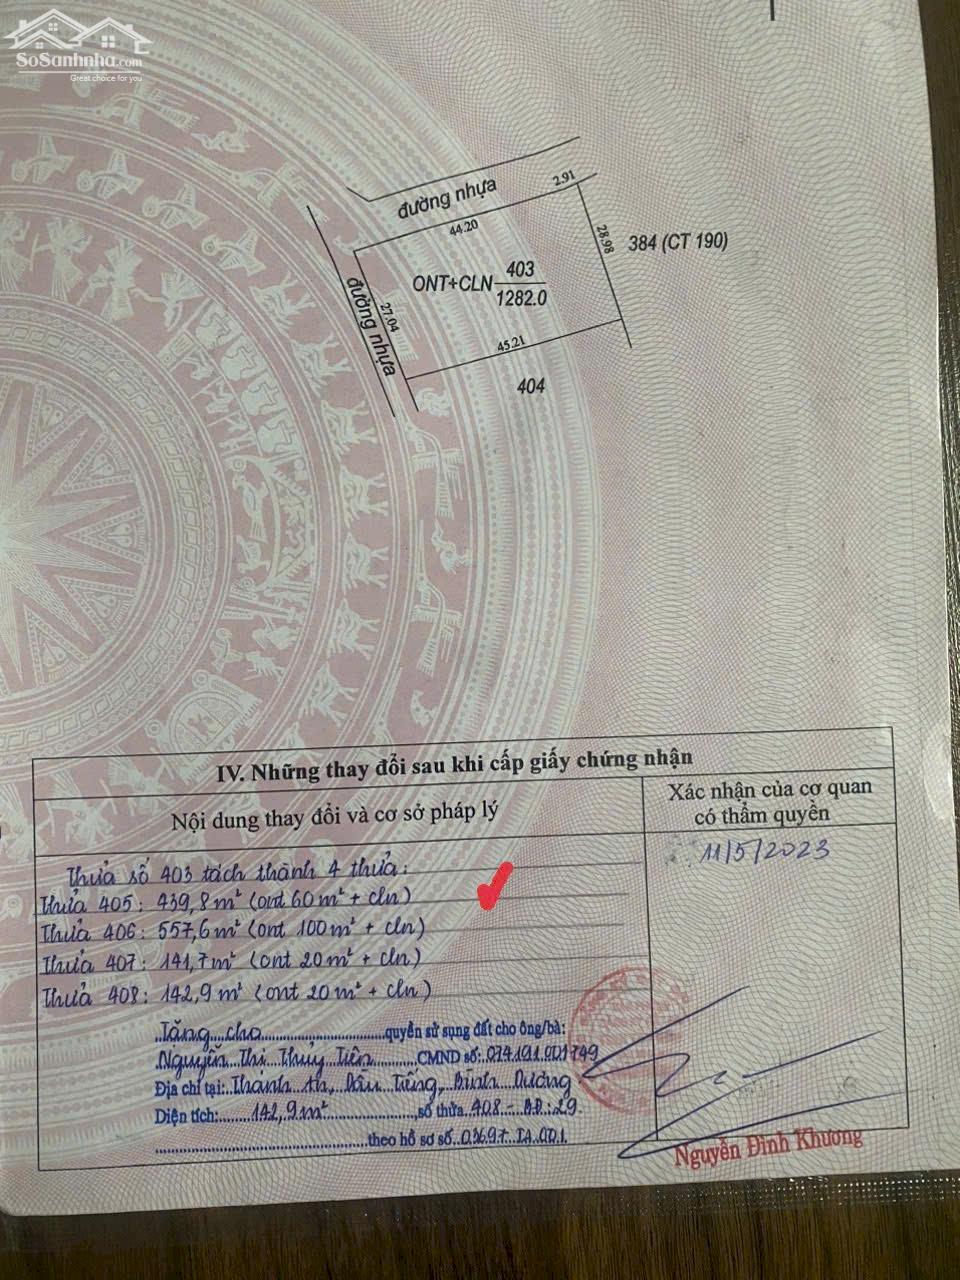 SoSanhnha.com
Great choice for you
đường nhựa
2.91
44.20
28.98
384 (CT 190)
ONT+CLN 403
1282.0
đường nhựa
27.04
45.21
404
IV. Những thay đổi sau khi cấp giấy chứng nhận
Nội dung thay đổi và cơ sở pháp lý
Xác nhận của cơ quan
có thẩm quyền
Thửa số 403 tách thành 4 thửa:
11/5/2023
Thửa 405: 439,8m² (ont 60m² + cln)
Thửa 406: 557,6m² (ont 100m² + cln)
Thửa 407: 141,7m² (ont 20m² + cln)
Thửa 408: 142,9m² (ont 20m² + cln)
Tặng cho quyền sử sụng đất cho ông/bà:
Nguyễn Thị Thủy Tiên CMND số: 074191001749
Địa chỉ tại: Thanh An, Dầu Tiếng, Bình Dương
Diện tích: 142,9m² , số thửa 408 - BĐ: 29
theo hồ sơ số 03697.TA.001
Nguyễn Đình Khương